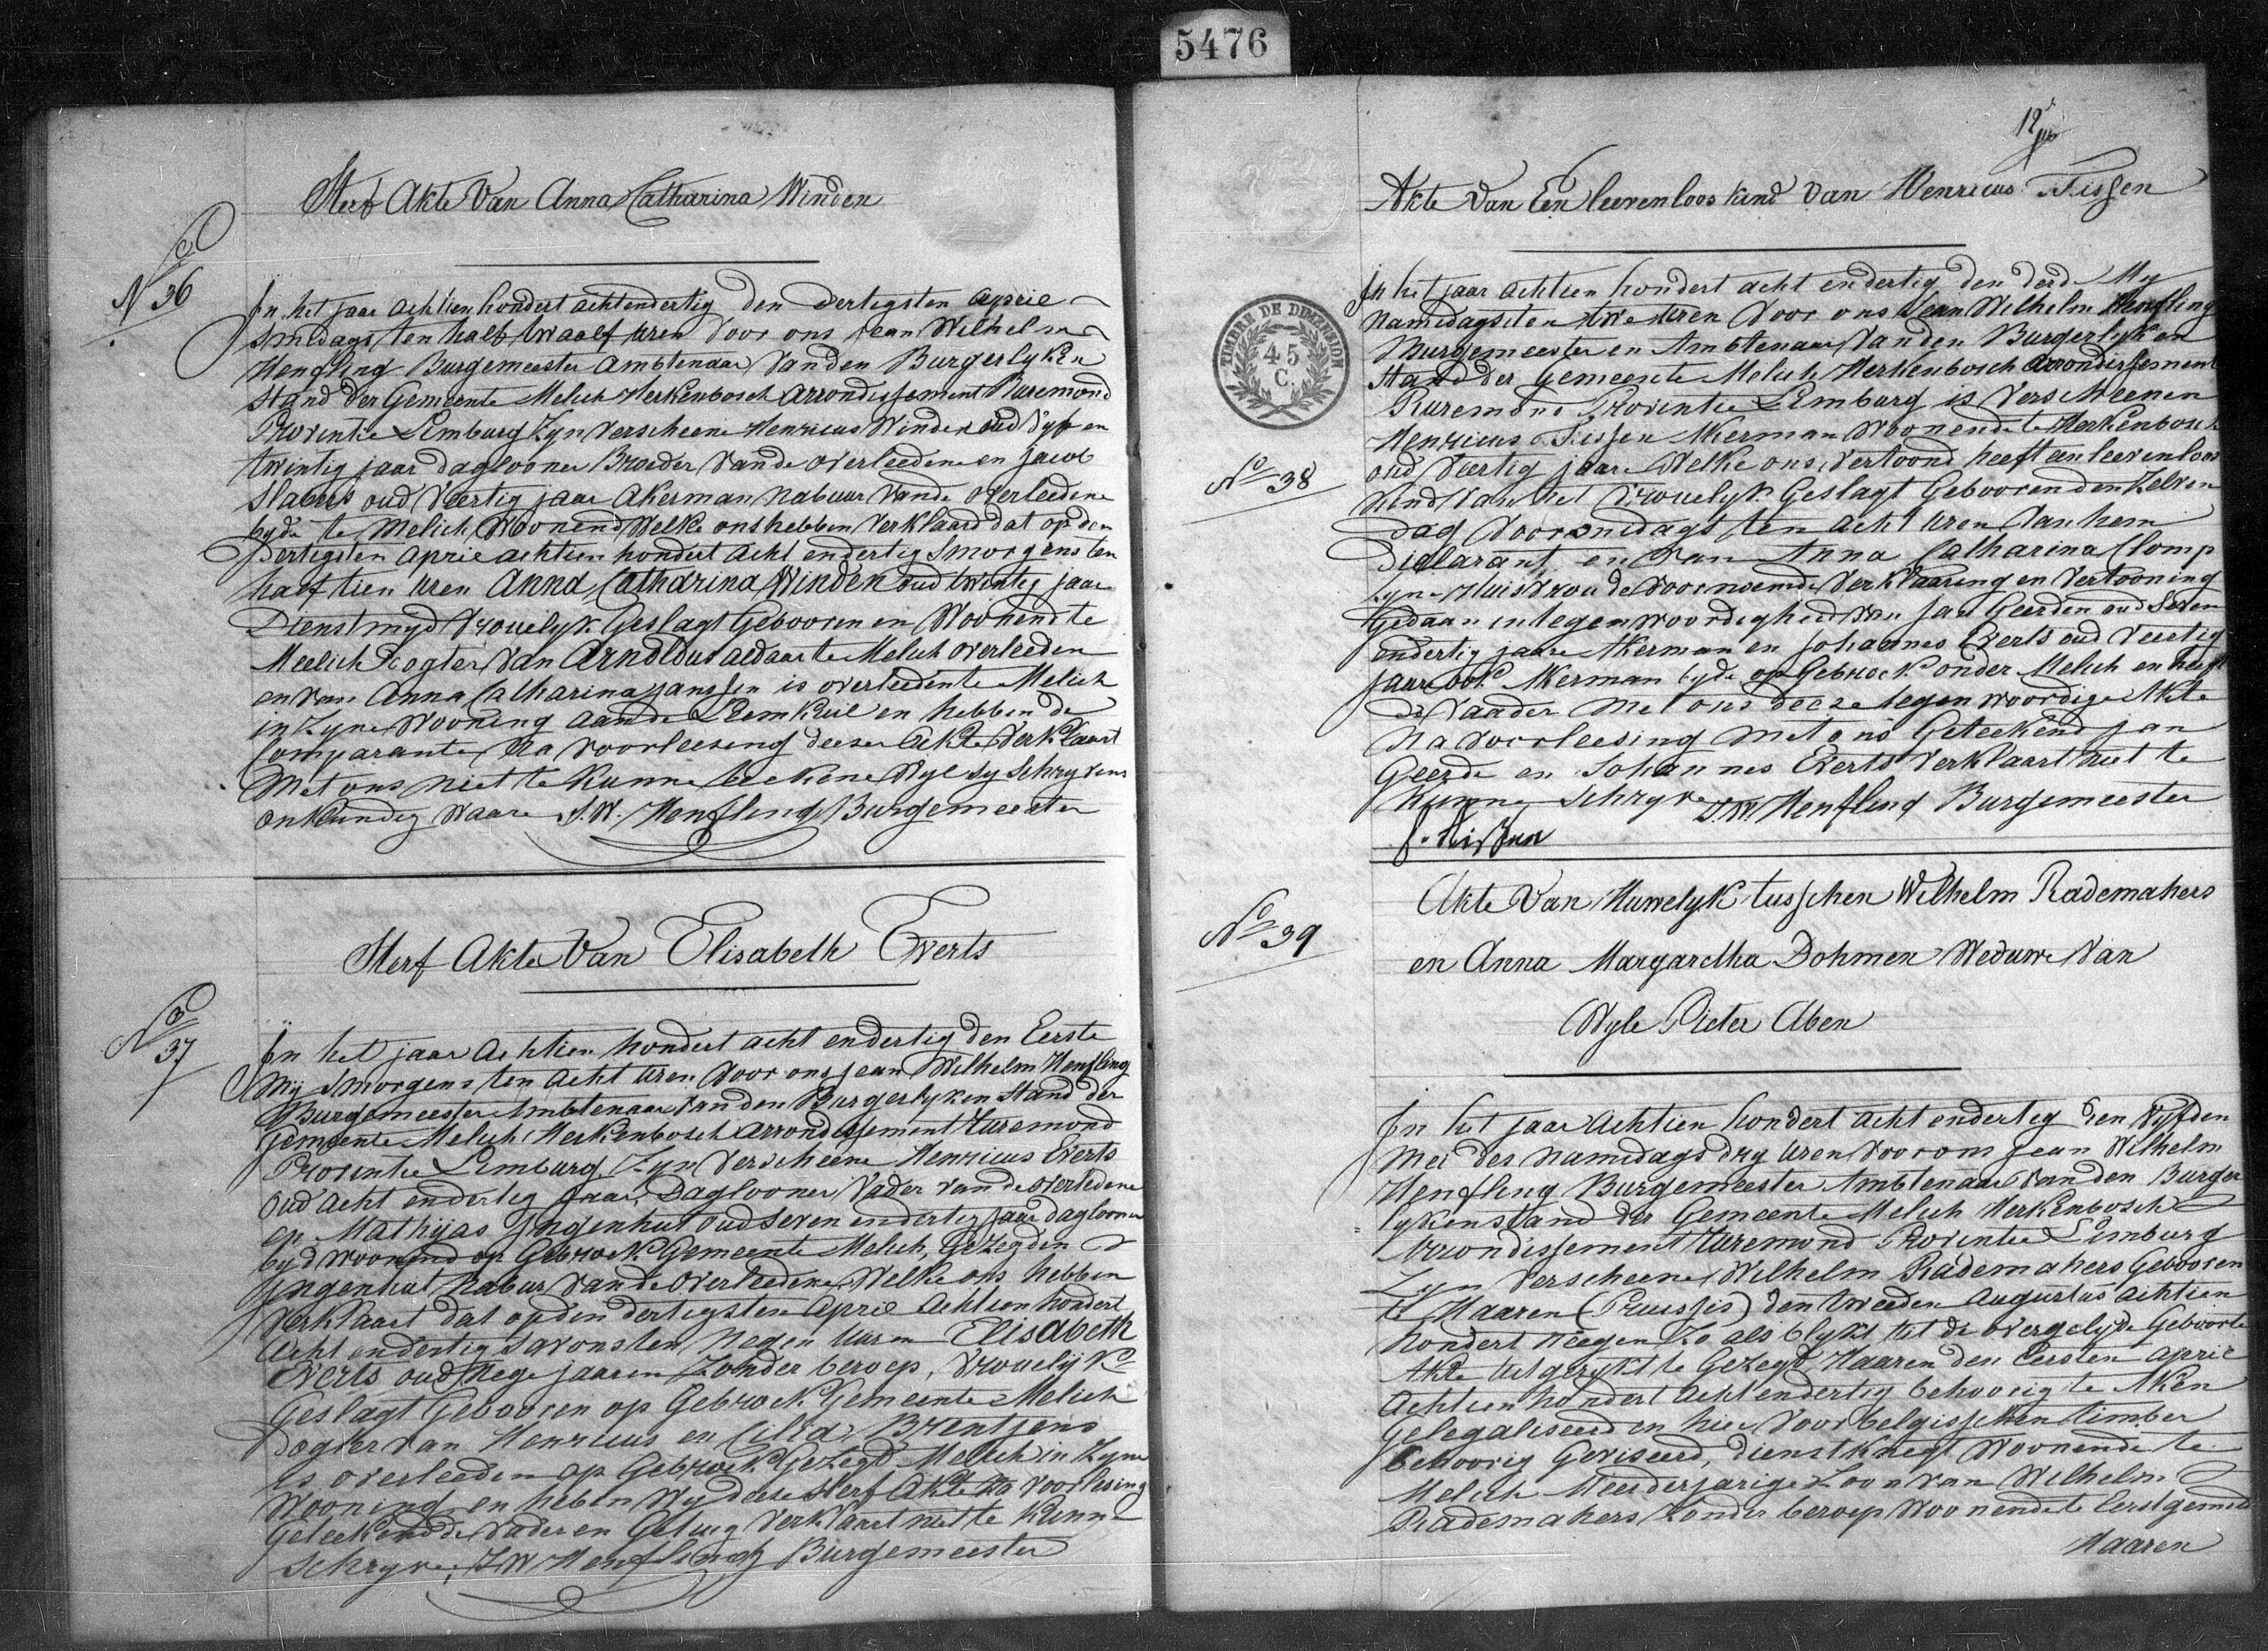 5476
Sterf Akte Van Anna Catharina Winden
No 36
In het jaar achtien hondert achtendertig den dertigsten aprie
smidags ten half twaalf uren voor ons Jean Wilhelm
Henfling Burgemeester ambtenaar van den Burgerlyken
stand der Gemeente Melick Herkenbosch arrondissement Ruremond
Provintie Limburg Zyn verscheene Henricus Winden oud vyf en
twintig jaar daglooner Broeder van de overleedene en Jacob
Slabbers oud veertig jaar akerman nabuur van de overleedene
byde te Melick Woonend Welke ons hebben verklaard dat op den
dertigsten aprie achtien hondert acht endertig smorgens ten
half tien uren Anna Catharina Winden oud twintig jaar
Dienstmyd vrouelyk Geslagt Gebooren en Woonend te
Meelick Dogter van Arnoldus aldaar te Melich overleeden
en van Anna Catharina Janssen is overleeden te Melich
in Zyne Wooning aan de Leemkuil en hebben de
Comparante na voorleesing deeser Akte verklaart
Met ons niet te kunne teekene Wyl sy schryvens
onkundig waare J.W. Henfling Burgemeester
Sterf Akte Van Elisabeth Everts
No 37
In het jaar Achtien hondert acht endertig den Eerste
Mij smorgens ten acht uren voor ons Jean Wilhelm Henfling
Burgemeester Ambtenaar van den Burgerlyken Stand der
Gemeente Melich Herkenbosch arrondissement Ruremond
Provintie Limburg Zyn verscheene Henricus Everts
oud acht endertig Jaar, Daglooner Vader van de overledene
en Mathijas Ingenhut oud seven endertig jaar daglooner
byd woonend op Gebroek Gemeente Melich, Gezegden
Ingenhut Nabur van de overleedene, Welke ons hebben
verklaart dat op den dertigsten aprie Achtien hondert
acht endertig savons ten negen uren Elisabeth
Everts oud Nege jaaren Zonder beroep, vrouelijk
Geslagt Gebooren op Gebroek Gemeente Melich
Dogter van Henricus en Cilia Brentjens
is overleeden op Gebroek Gezegd Melich in Zyne
Wooning en heben Wy deese Sterf Akte na voorlesing
Geteekend de vader en Getuig verklaart niet te kunn
Schryve, J W Henfling Burgemeester
12e
Akte Van Een leevenloos kind van Henricus Tissen
TIMBRE DE DIMENSION
45
C.
No 38
In het jaar achtien hondert acht endertig den derd My
Namidags ten twe uren voor ons Jean Wilhelm Henfling
Burgemeester en Ambtenaar van den Burgerlyken
Stand der Gemeente Melich Herkenbosch Arrondissement
Ruremond Provintie Limburg is verscheenen
Henricus Tissen Akerman Woonende te Herkenbosch
oud veertig jaar Welke ons vertoond heeft een leevenloos
kind van het vrouelyk Geslagt Gebooren den Zelven
Dag voormidags ten acht uren van hem
Diclarant en van Anna Catharina Clomp
Zyne Huisvrou de voornoemde verklaaring en vertooning
Gedaan in tegenwoordigheid van Jan Geerden oud Seven
endertig jaare Akerman en Johannes Everts oud Veertig
jaar ook Akerman byde op Gebroek onder Melich en heeft
de Vaader Met ons deese tegenwoordige Akte
Na voorleesing met ons Geteekend Jan
Geerde en Johannes Everts verklaart niet te
kunne Schryve J.W. Henfling Burgemeester
No 39
Akte Van Huwelyk tusschen Wilhelm Rademahers
en Anna Margaretha Dohmen Weduwe Van
Wyle Pieter Aben
In het jaar Achtien hondert acht endertig den Vyfden
Mei des namidags dry uren voor ons Jean Wilhelm
Henfling Burgemeester Ambtenaar van den Burger
lyken stand der Gemeente Melich Herkenbosch
Arrondissement Ruremond Provintie Limburg
Zyn Verscheene Wilhelm Rademahers Gebooren
te Haaren (Pruissis) den tweeden Augustus achtien
hondert neegen Zo als blykt uit de overgelyde Geboorte
Akte uitgerykt te Gezegd Haaren den Eersten aprie
Achtien hondert acht endertig behoorig te Aken
Gelegaliseerd en hier voor belgisschen timber
behoorig Geviseerd, dienstknegt woonende te
Melich Meerderjarige Zoon van Wilhelm
Rademahers Zonder beroep Woonende te Eerstgemeld
Haaren